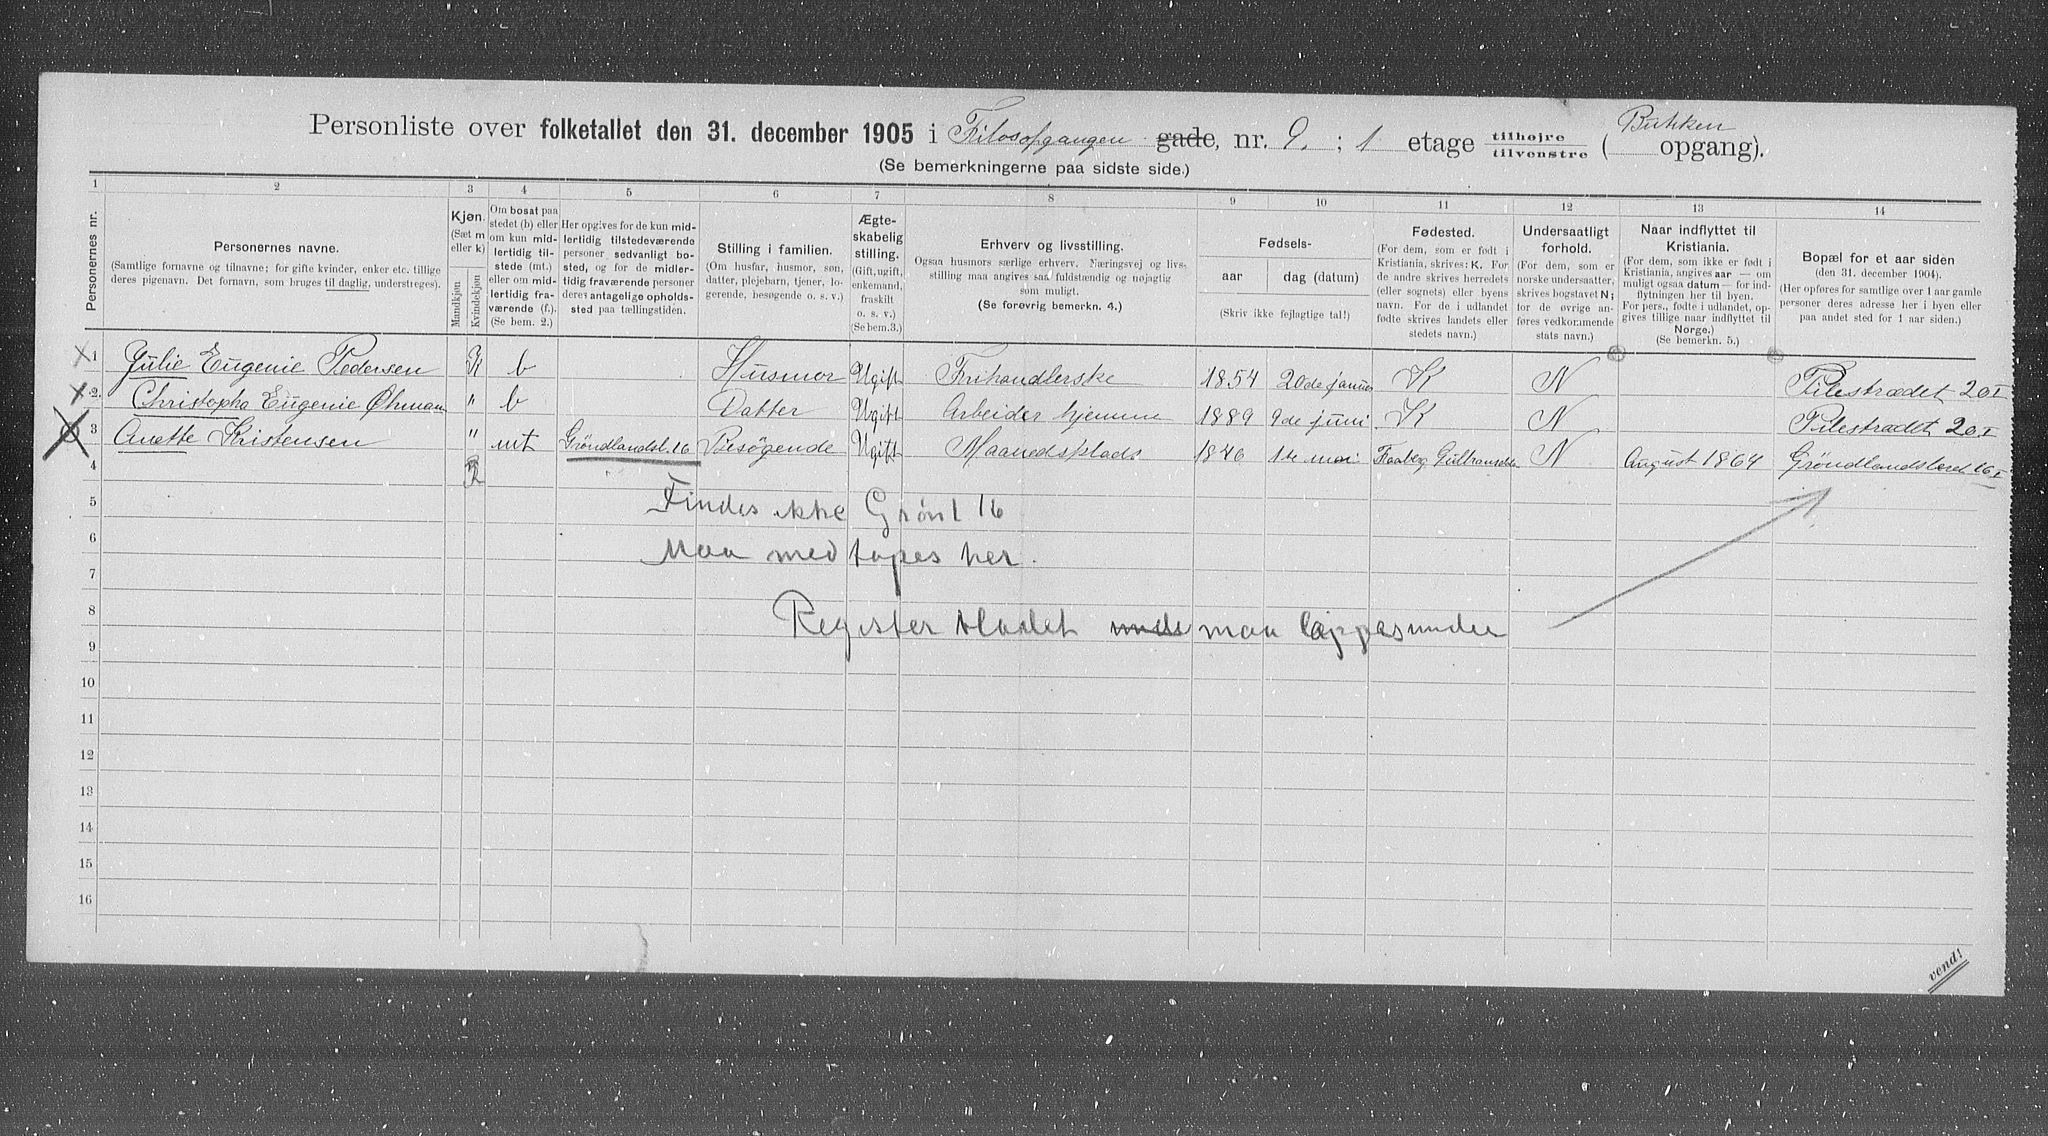 Personliste over folketallet den 31. december 1905 i Filosofgangen gade, nr. 9. ; 1 etage tilhøjre tilvenstre ( opgang).
(Se bemerkningerne paa sidste side.)
1 2 3 4 5 6 7 8 9 10 11 12 13 14
Personernes nr.
Personernes navne.
(Samtlige fornavne og tilnavne; for gifte kvinder, enker etc. tillige
deres pigenavn. Det fornavn, som bruges til daglig, understreges).
Kjøn.
(Sæt m
eller k)
Mandkjøn
Kvindekjøn
Om bosat paa
stedet (b) eller
om kun mid-
lertidig til-
stede (mt.)
eller om mid-
lertidig fra-
værende (f.).
(Se bem. 2.)
Her opgives for de kun mid-
lertidig tilstedeværende
personer sedvanligt bo-
sted, og for de midler-
tidig fraværende personer
deres antagelige opholds-
sted paa tællingstiden.
Stilling i familien.
(Om husfar, husmor, søn,
datter, plejebarn, tjener, lo-
gerende, besøgende o. s. v.)
Ægte-
skabelig
stilling.
(Gift, ugift,
enkemand,
fraskilt
o. s. v.)
(Se bem. 3.)
Erhverv og livsstilling.
Ogsaa husmors særlige erhverv. Næringsvej og livs-
stilling maa angives saa fuldstændig og nøjagtig
som muligt.
(Se forøvrig bemerkn. 4.)
Fødsels-
aar
dag (datum)
(Skriv ikke fejlagtige tal!)
Fødested.
(For dem, som er født i
Kristiania, skrives: K. For
de andre skrives herredets
(eller sognets) eller byens
navn. For de i udlandet
fødte skrives landets eller
stedets navn.)
Undersaatligt
forhold.
(For dem, som er
norske undersaatter,
skrives bogstavet N;
for de øvrige an-
føres vedkommende
stats navn.)
Naar indflyttet til
Kristiania.
(For dem, som ikke er født i
Kristiania, angives aar — om
muligt ogsaa datum — for ind-
flytningen her til byen.
For pers, fødte i udlandet, op-
gives tillige naar indflyttet til
Norge.)
(Se bemerkn. 5.)
Bopæl for et aar siden
(den 31. december 1904).
(Her opføres for samtlige over 1 aar gamle
personer deres adresse her i byen eller
paa andet sted for 1 aar siden.)
1 Julie Eugenie Pedersen K b Husmor Ugift Frihandlerske 1854 20de januar K N Pilestrædet 20 I
2 Christopha Eugenie Øhman " b Datter Ugift Arbeider hjemme 1889 9de juni K N Pilestrædet 20 I
3 Anette Kristensen " mt Gröndlandsl. 16 Besögende Ugift Maanedsplads 1846 14 mai Faaberg Gulbransdalen N August 1864 Gröndlandsleret 16 I
4 K
5 Findes ikke Grønl 16
6 Maa medtages her.
7
8 Registerbladet maa lappes under
9
10
11
12
13
14
15
16
vend!